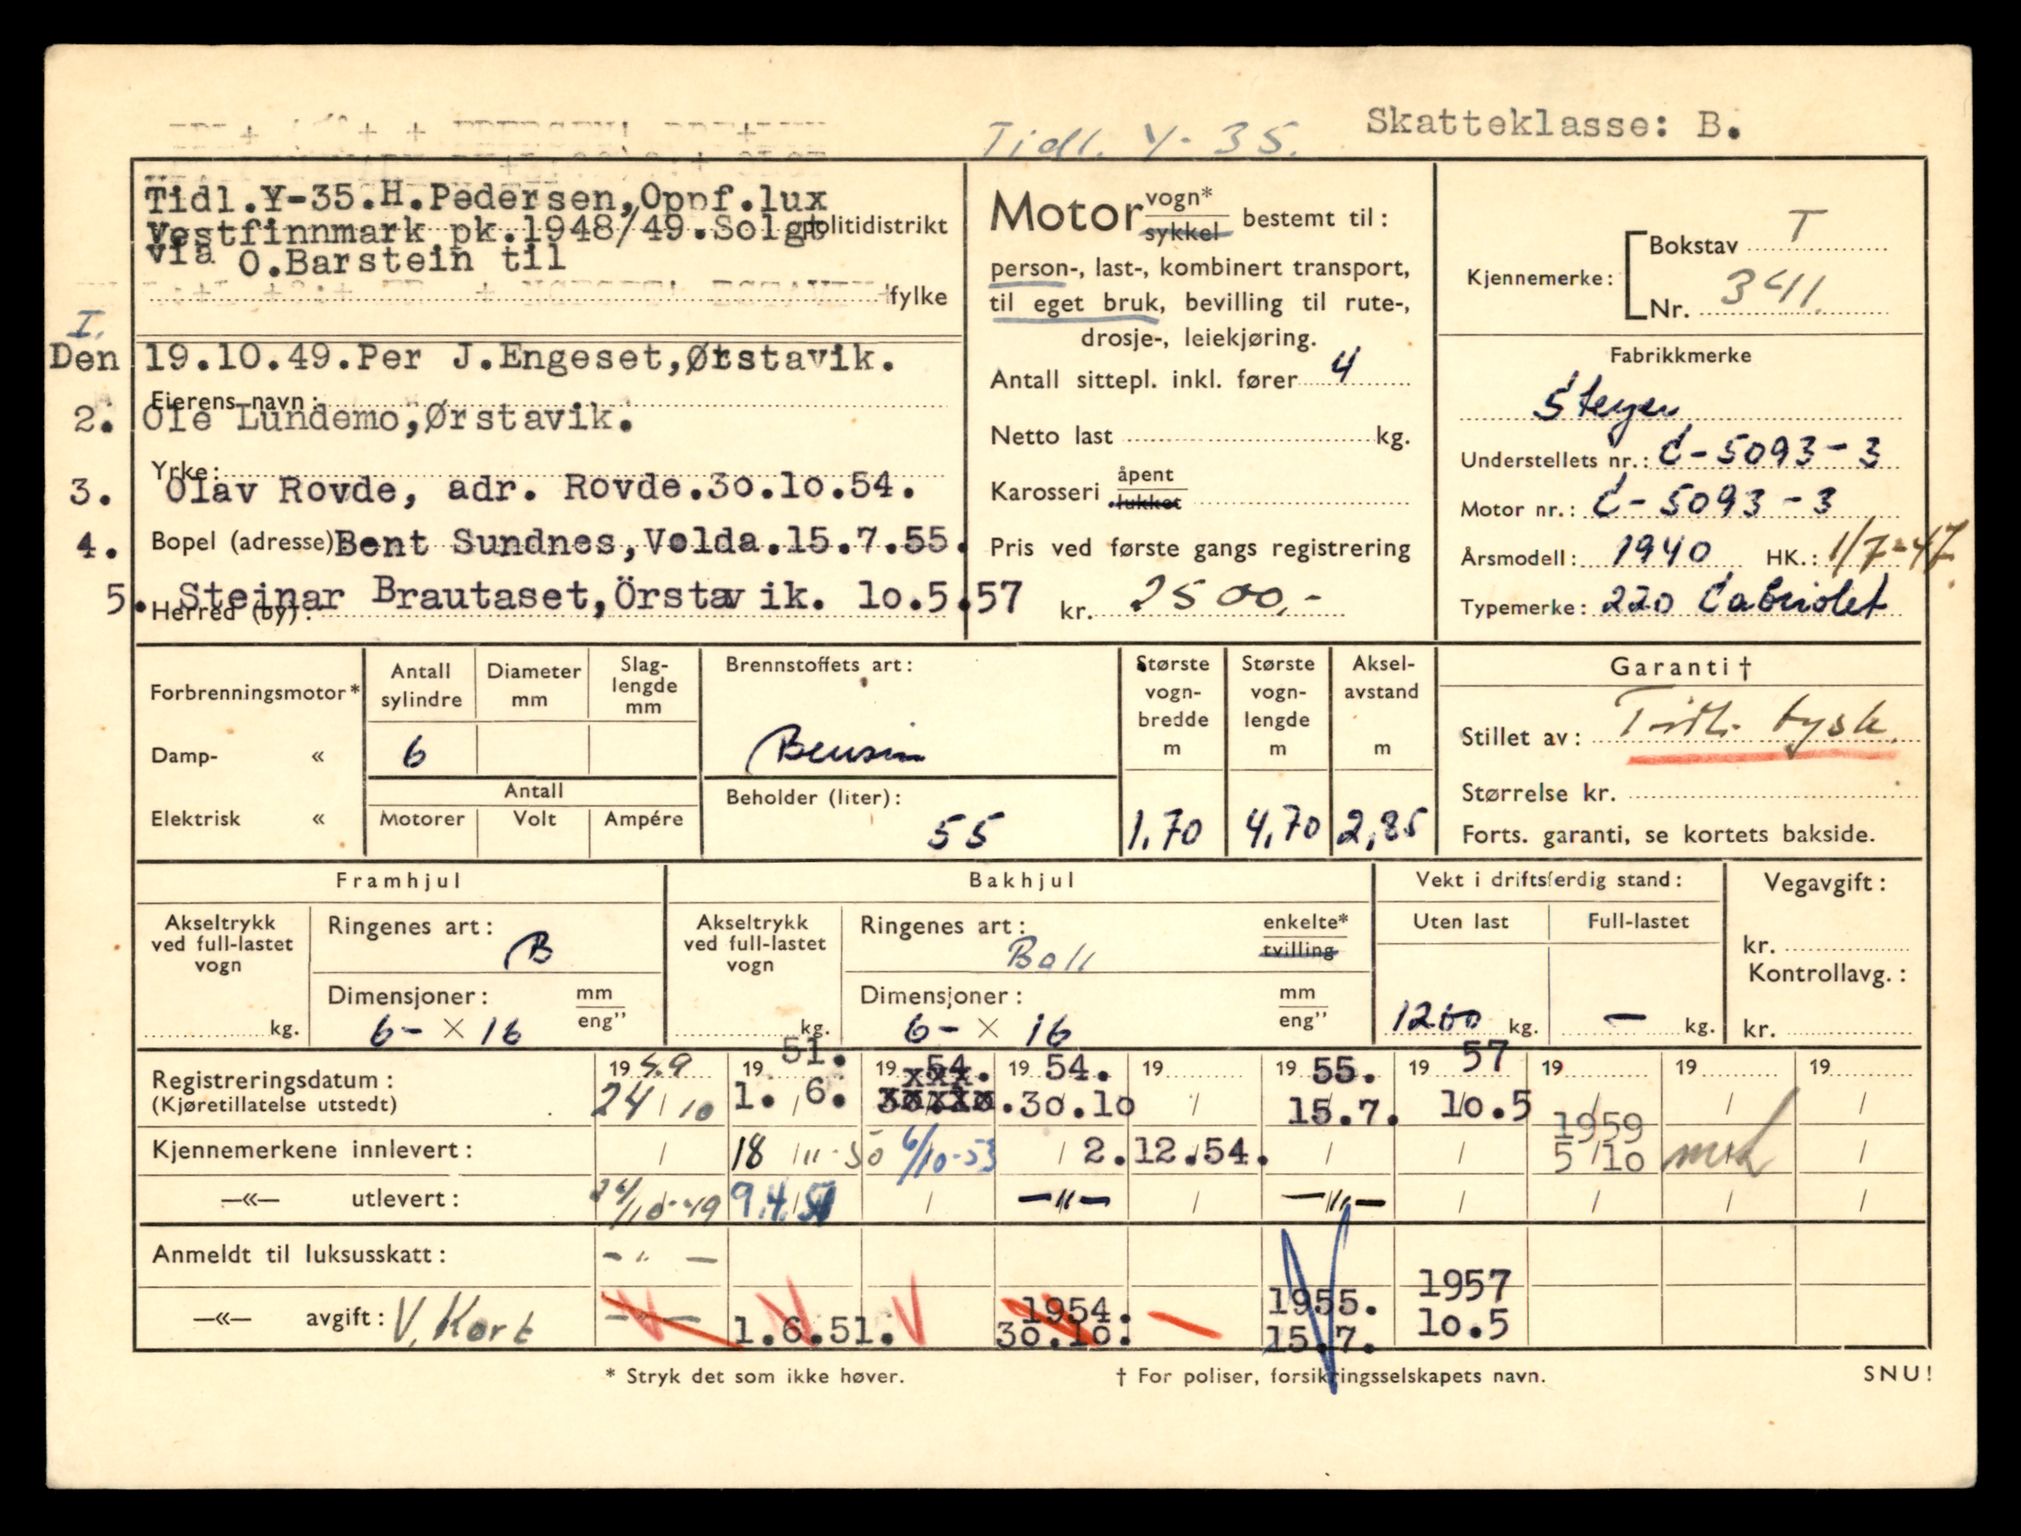 Tidl. Y-35. Skatteklasse: B.
Tidl.Y-35.H.Pedersen,Oppf.lux
Vestfinnmark pk.1948/49.Solgt politidistrikt
via O.Barstein til
fylke
I.
Den 19.10.49.Per J.Engeset,Ørstavik.
Eierens navn:
2. Ole Lundemo,Ørstavik.
Yrke:
3. Olav Rovde, adr. Rovde.30.10.54.
4. Bopel (adresse) Bent Sundnes,Volda.15.7.55.
5. Steinar Brautaset,Örstavik. 10.5.57
Herred (by):
Motor vogn* sykkel bestemt til:
person-, last-, kombinert transport,
til eget bruk, bevilling til rute-,
drosje-, leiekjøring.
Antall sittepl. inkl. fører 4
Netto last kg.
Karosseri åpent lukket
Pris ved første gangs registrering
kr. 2500,-
Kjennemerke: Bokstav T
Nr. 341.
Fabrikkmerke
Steyer
Understellets nr.: C-5093-3
Motor nr.: C-5093-3
Årsmodell: 1940 HK.: 1/7-47.
Typemerke: 220 Cabriolet
Forbrenningsmotor*
Damp- «
Elektrisk «
Antall sylindre
Diameter mm
Slag-lengde mm
6
Antall
Motorer Volt Ampére
Brennstoffets art:
Bensin
Beholder (liter):
55
Største vogn-bredde m
1,70
Største vogn-lengde m
4,70
Aksel-avstand m
2,85
Garanti †
Stillet av: Tidl. tysk.
Størrelse kr.
Forts. garanti, se kortets bakside.
Framhjul
Akseltrykk ved full-lastet vogn
kg.
Ringenes art:
B
Dimensjoner: mm eng”
6- × 16
Bakhjul
Akseltrykk ved full-lastet vogn
kg.
Ringenes art: enkelte* tvilling
Ball
Dimensjoner: mm eng”
6- × 16
Vekt i driftsferdig stand:
Uten last Full-lastet
1200 kg. — kg.
Vegavgift:
kr.
Kontrollavg.:
kr.
Registreringsdatum: 19 49 19 51. 19 54. 19 54. 19 19 55. 19 57 19 19 19
(Kjøretillatelse utstedt) 24/10 1. 6. 30.10. 30.10 15.7. 10.5
Kjennemerkene innlevert: 18/11-50 6/10-53 2.12.54. 1959 5/10
—«— utlevert: 24/10-49 9.4.51 —"— —"—
Anmeldt til luksusskatt: - " -
—«— avgift: V. Kort - " - 1.6.51. 1954. 30.10. 1955. 15.7. 1957 10.5
* Stryk det som ikke høver. † For poliser, forsikringsselskapets navn. SNU!